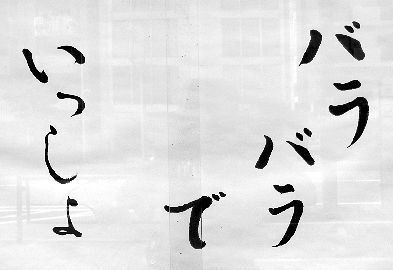 バラ
バラ
で
いっしょ